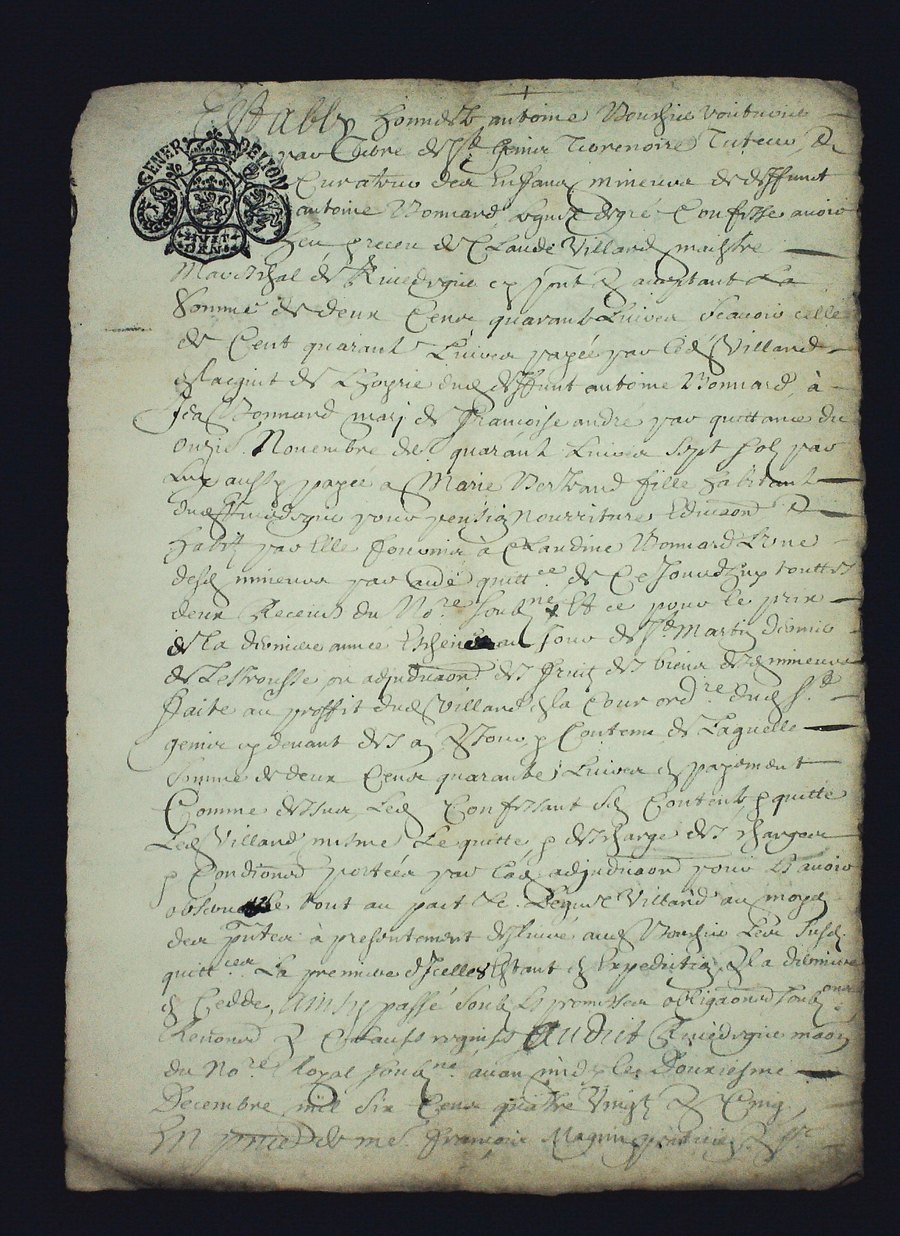 Establÿ honneste antoine Bourbier voiturier
GENER. DE LION
HUIT DEN
par Terre de St Genis Terrenoire Tuteur &
Curateur des Enfans mineurs de deffunt
antoine Bonnard Lequel de gré Confesse avoir
heu receu de Claude Villard maistre
Mareschal de Rivedegie cy pnt & acceptant La
Somme de deux Cens quarante Livres Scavoir celle
de Cent quarante Livres payée par led Villard
a Lacquit de Lhoyrie dud deffunt antoine Bonnard, à
Bonnard mary de francoise andré par quittance du
Novembre de quarante Livres sept sols par
Luy aussy payée a Marie Bertrand fille habitant
dud Rivedegie pour pension nourriture Education &
habit par Elle fournie à Claudine Bonnard L'une
desd mineurs par quittce de Ce Jourdhuy touttes
deux Receues du Nore soubne Et ce pour le prix
de La derniere année Escheue au Jour de St Martin dernier
de des fruits des biens desd mineurs
faite au proffit dud Villard en la Cour ordre dud St
genis cy devant de Contenu de Laquelle
Somme de deux Cens quarante Livres en payement
Comme dessus Led Confessant Se Contente & quitte
Led Villard, mesme Le quitte & descharge des charges
& Conditions portées par lad adjudicaon pour Les avoir
observé Le tout au par Lequel Villard au moyen
des pntes à presentement deslivré aud Bourbier Les susd
quittces La premiere d'Icelles Estant en Expedition & La derniere
en Cedde, Ainsy passé soubs Les promesses obligaons soubmons
Renonons & Clauses requises audit Rivedegie maon
du Nore royal soubne avant midy le Douziesme
Decembre mil six Cens quatre vingt & Cinq,
En pnce de me francois Magnin praticien &